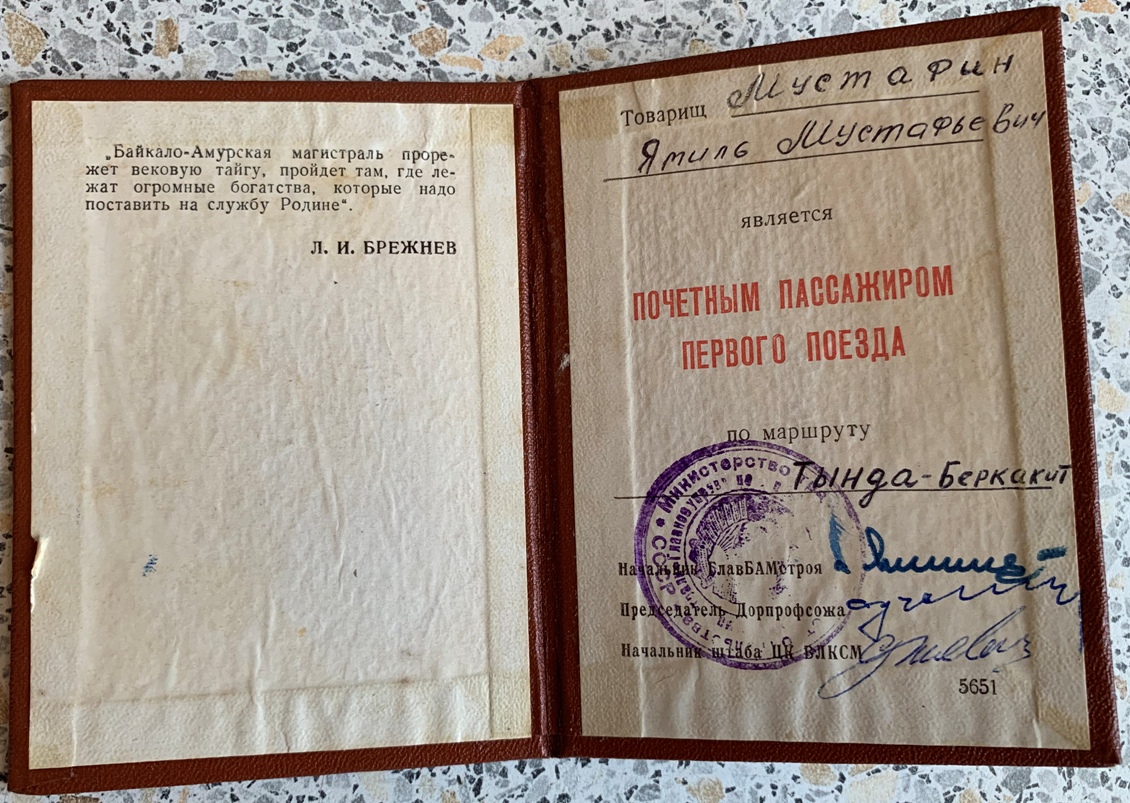 „Байкало-Амурская магистраль проре-
жет вековую тайгу, пройдет там, где ле-
жат огромные богатства, которые надо
поставить на службу Родине“.
Л. И. БРЕЖНЕВ
Товарищ Мустафин
Ямиль Мустафьевич
является
ПОЧЕТНЫМ ПАССАЖИРОМ
ПЕРВОГО ПОЕЗДА
по маршруту
Тында-Беркакит
Министерство
СССР
Начальник ГлавБАМстроя
Председатель Дорпрофсожа
Начальник штаба ЦК ВЛКСМ
5651